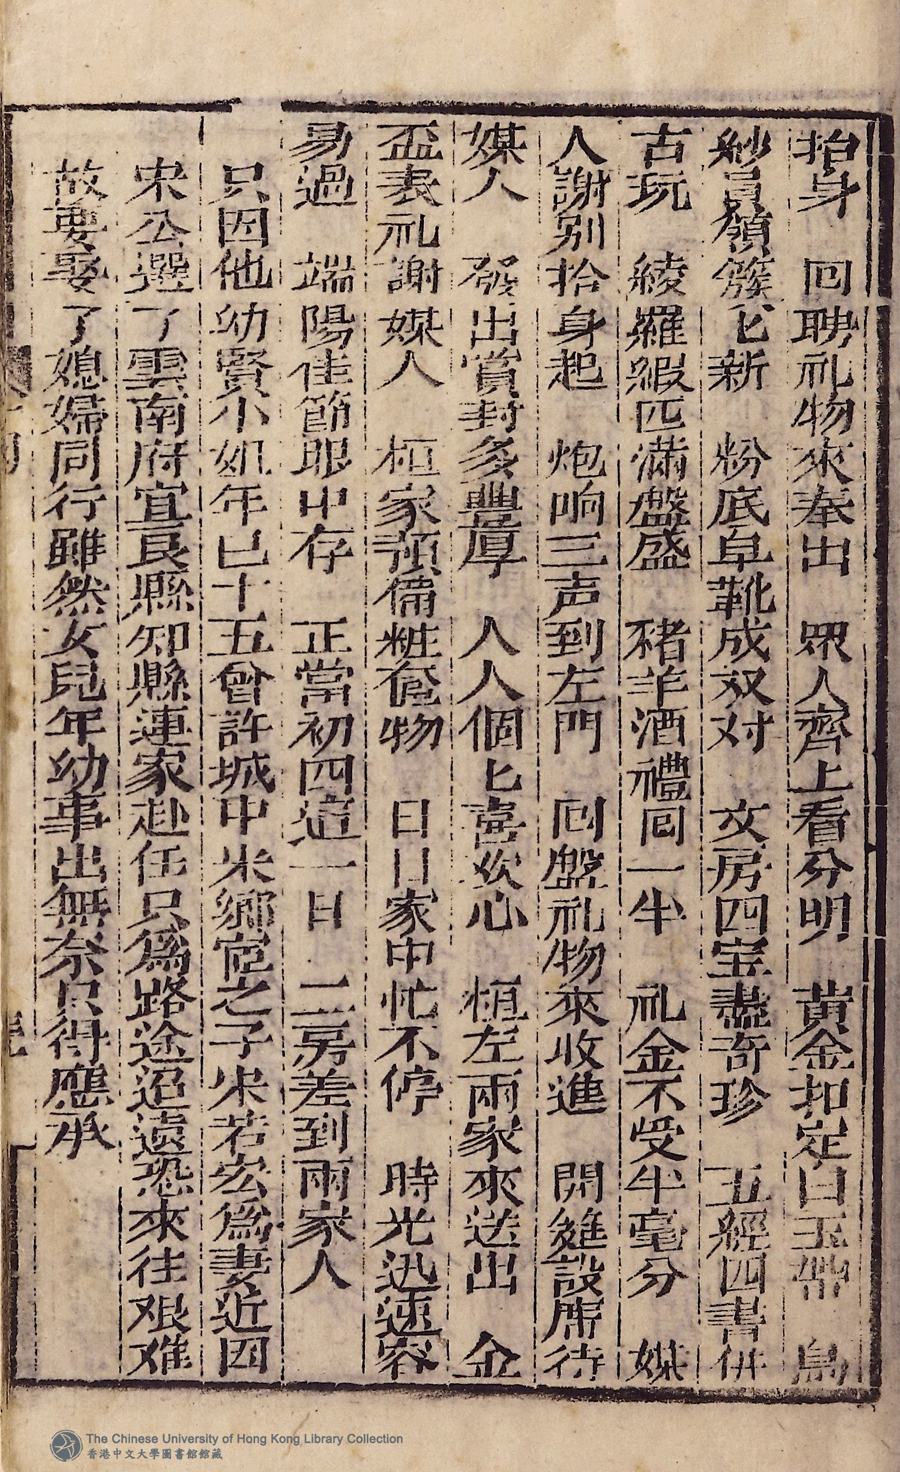 抬身　回聘礼物來奉出　眾人齊上看分明　黃金扣定白玉帶　烏
紗員領簇匕新　粉底皂靴成双对　文房四宝盡奇珍　五經四書併
古玩　綾羅緞匹滿盤盛　豬羊酒禮同一半　礼金不受半毫分　媒
人謝别抬身起　炮响三声到左門　回盤礼物來收進　開筵設席待
媒人　發出賞封多豐厚　人人個匕喜欢心　桓左兩家來送出　金
盃表礼謝媒人　桓家預偹粧奩物　日日家中忙不停　時光迅速容
易過　端陽佳節眼中存　正當初四這一日　二房差到兩家人
只因他幼賢小姐年已十五曾許城中宋鄉宦之子宋若宏為妻近因
宋公選了雲南府宜良縣知縣連家赴任只為路途迢遠恐來往艰难
故要娶了媳婦同行雖然女兒年幼事出無奈只得應承
The Chinese University of Hong Kong Library Collection
香港中文大學圖書館館藏